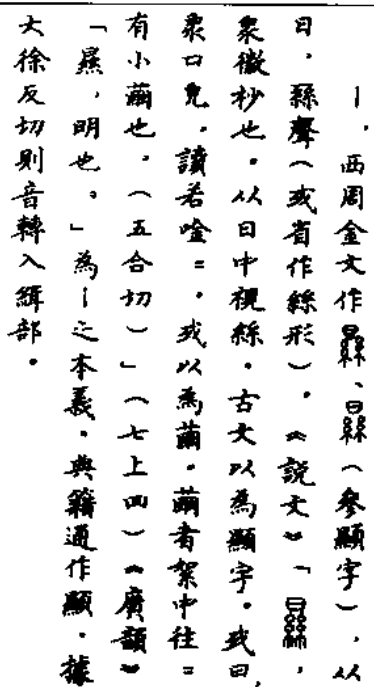 丨，西周金文作㬎、㬎（參顯字），从
日，䜌聲（或省作絲形）。《說文》「㬎，
衆微杪也。从日中視絲。古文以為顯字。或曰，
衆口皃。讀若唫＝。或以為繭。繭者絮中往＝
有小繭也。（五合切）」（七上四）《廣韻》
「㬎，明也。」為丨之本義。典籍通作顯。據
大徐反切則音轉入緝部。